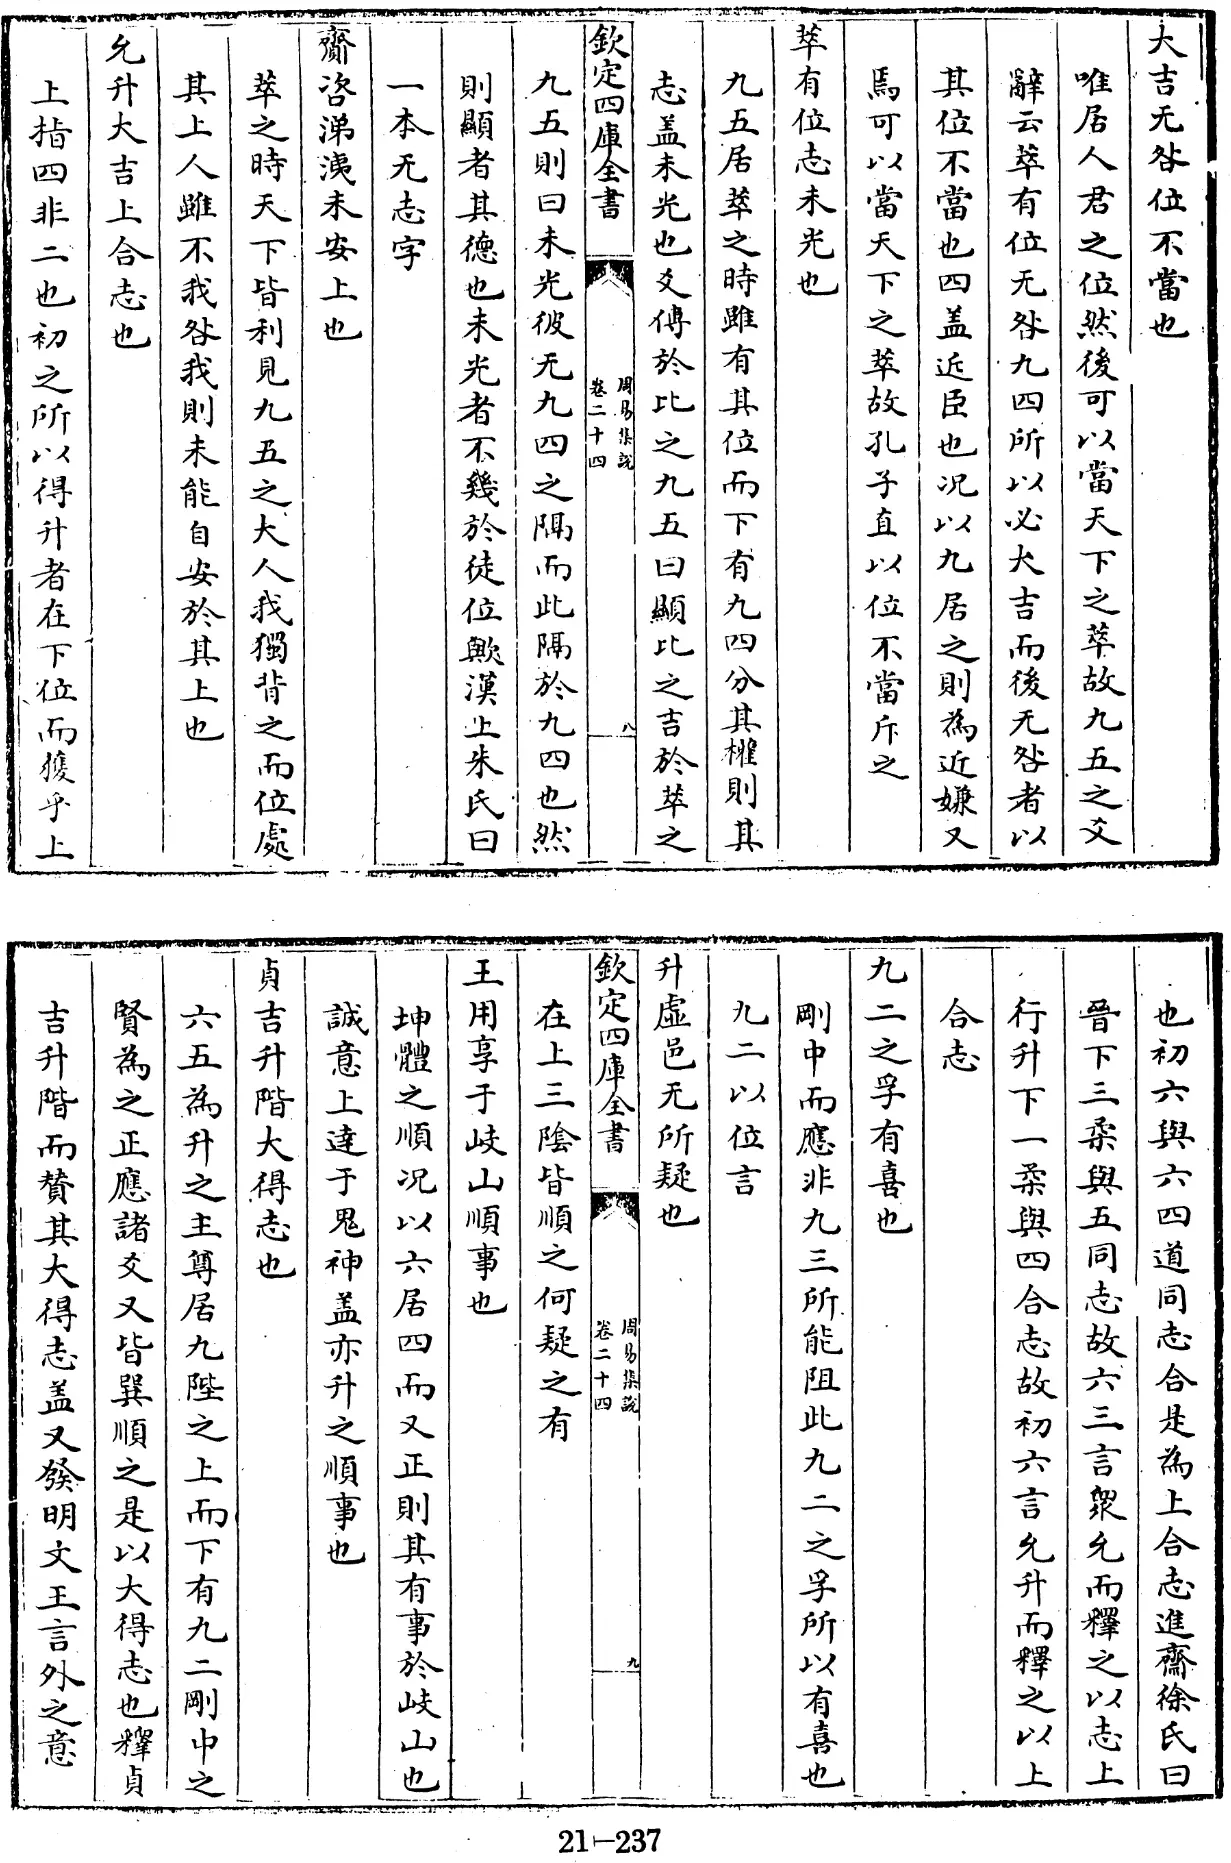 大吉无咎位不當也
唯居人君之位然後可以當天下之萃故九五之爻
辭云萃有位无咎九四所以必大吉而後无咎者以
其位不當也四蓋近臣也况以九居之則為近嫌又
焉可以當天下之萃故孔子直以位不當斥之
萃有位志未光也
九五居萃之時雖有其位而下有九四分其權則其
志蓋未光也爻傳於比之九五曰顯比之吉於萃之
欽定四庫全書
周易集説
卷二十四
八
九五則曰未光彼无九四之隔而此隔於九四也然
則顯者其德也未光者不幾於徒位歟漢上朱氏曰
一本无志字
齎咨涕洟未安上也
萃之時天下皆利見九五之大人我獨背之而位處
其上人雖不我咎我則未能自安於其上也
允升大吉上合志也
上指四非二也初之所以得升者在下位而獲乎上
也初六與六四道同志合是為上合志進齋徐氏曰
晉下三柔與五同志故六三言衆允而釋之以志上
行升下一柔與四合志故初六言允升而釋之以上
合志
九二之孚有喜也
剛中而應非九三所能阻此九二之孚所以有喜也
九二以位言
升虛邑无所疑也
欽定四庫全書
周易集説
卷二十四
九
在上三陰皆順之何疑之有
王用享于岐山順事也
坤體之順况以六居四而又正則其有事於岐山也
誠意上達于鬼神蓋亦升之順事也
貞吉升階大得志也
六五為升之主尊居九陛之上而下有九二剛中之
賢為之正應諸爻又皆巽順之是以大得志也釋貞
吉升階而贊其大得志蓋又發明文王言外之意
21-237